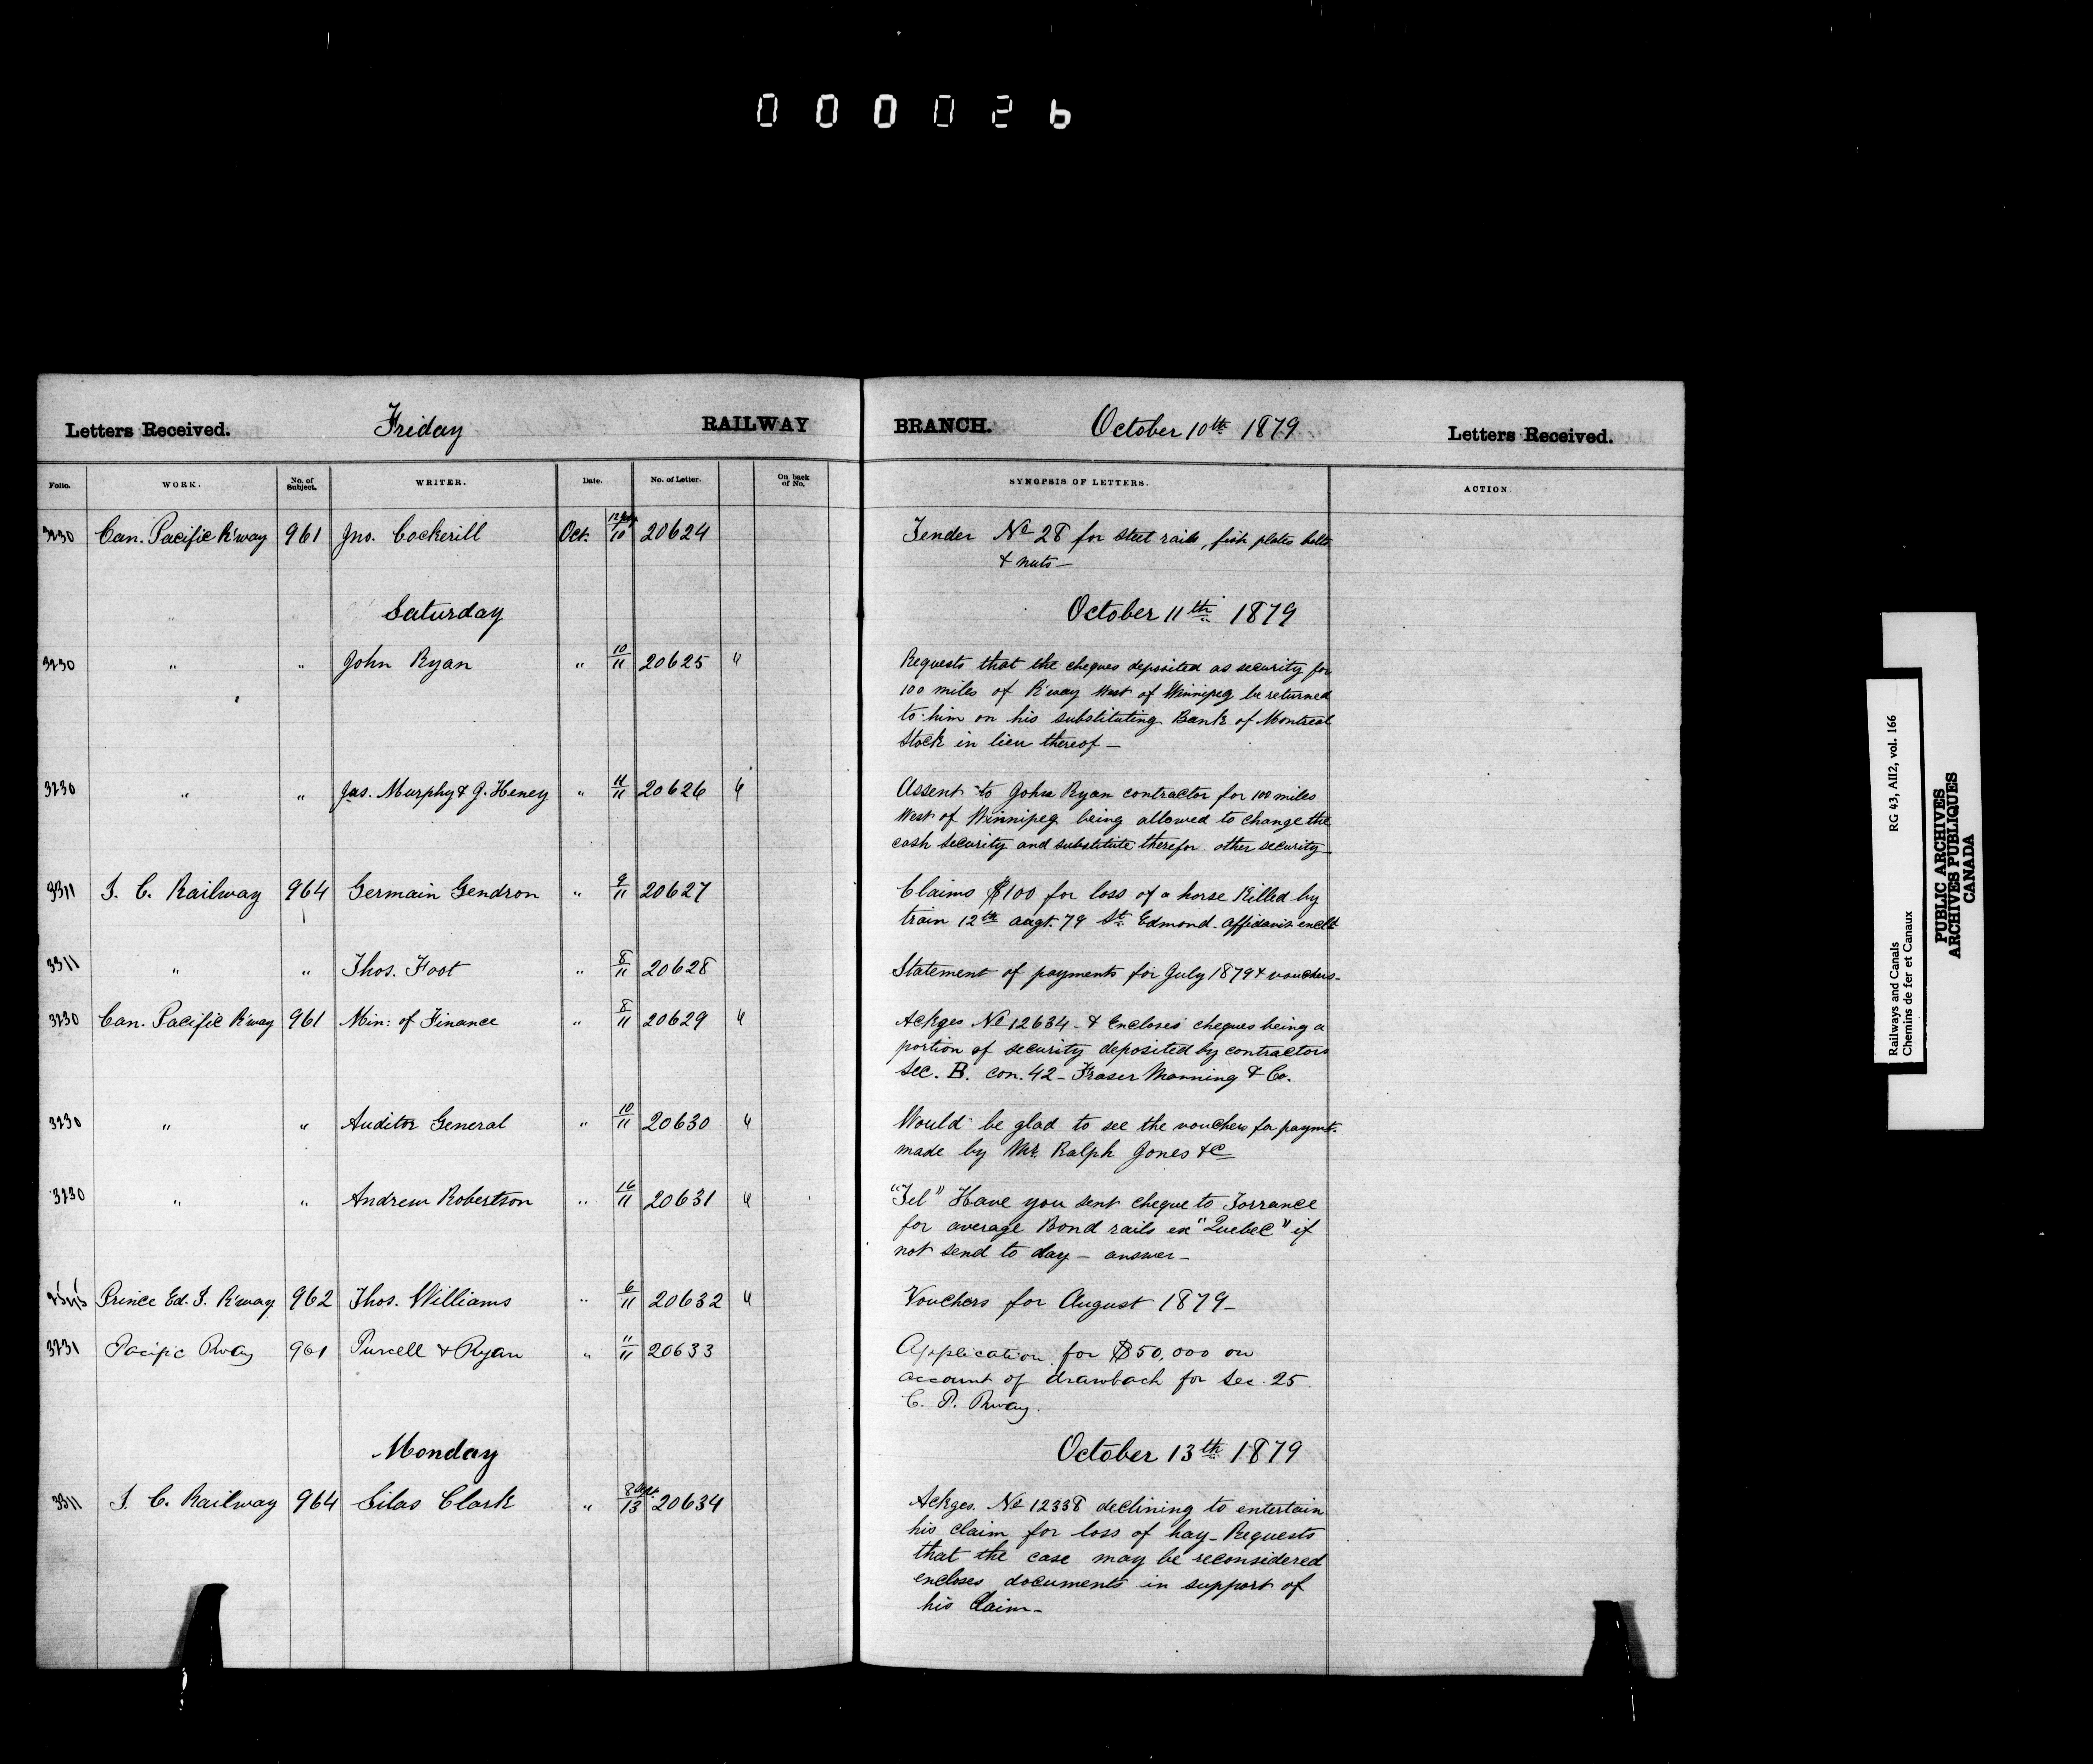 000026
Letters Received. Friday RAILWAY BRANCH. October 10th 1879 Letters Received.
Folio. WORK. No. of Subject. WRITER. Date. No. of Letter. On back of No. SYNOPSIS OF LETTERS. ACTION.
3230 Can. Pacific R'way 961 Jno. Cockerill Oct. 10 20624 Tender No 28 for steel rails, fish plates bolts
& nuts —
Saturday October 11th 1879
3230 " " John Ryan " 10/11 20625 " Requests that the cheques deposited as security for
100 miles of R'way West of Winnipeg be returned
to him on his substituting Bank of Montreal
Stock in lieu thereof —
3230 " " Jas. Murphy & J. Heney " 11/11 20626 " Assent to John Ryan contractor for 100 miles
West of Winnipeg being allowed to change the
cash security and substitute therefor other security —
3311 I. C. Railway 964 Germain Gendron " 9/11 20627 Claims $100 for loss of a horse Killed by
train 12th augt. 79 St. Edmond. Affidavit encld
3311 " " Thos. Foot " 8/11 20628 Statement of payments for July 1879 & vouchers -
3230 Can. Pacific R'way 961 Min: of Finance " 8/11 20629 " Ackges No 12634 - & Encloses cheques being a
portion of security deposited by contractors
Sec. B. con. 42 - Fraser Manning & Co.
3230 " " Auditor General " 10/11 20630 " Would be glad to see the vouchers for paymt.
made by Mr. Ralph Jones &c
3230 " " Andrew Robertson " 20631 " "Tel" Have you sent cheque to Torrance
for average Bond rails ex "Quebec" if
not send to day - answer -
Prince Ed. I. R'way 962 Thos. Williams " 6/11 20632 " Vouchers for August 1879 -
3231 Pacific Rway 961 Purcell & Ryan " 11/11 20633 Application for $50,000 on
account of drawback for Sec. 25
C. P. Rway.
Monday October 13th 1879
3311 I. C. Railway 964 Silas Clark " 8 Sept. 13 20634 Ackges. No 12338 declining to entertain
his claim for loss of hay - Requests
that the case may be reconsidered
encloses documents in support of
his Claim -
Railways and Canals RG 43, AII2, vol. 166
Chemins de fer et Canaux
PUBLIC ARCHIVES
ARCHIVES PUBLIQUES
CANADA